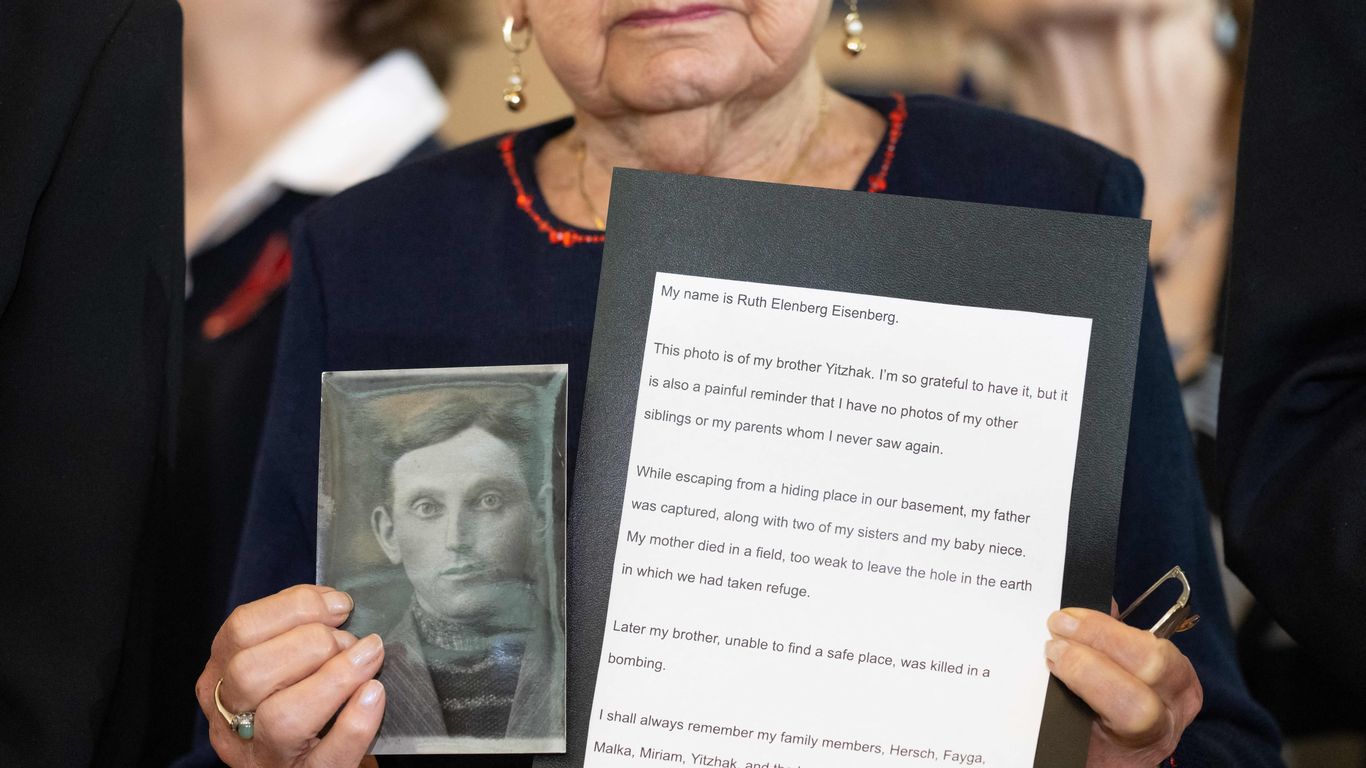 My name is Ruth Elenberg Eisenberg.
This photo is of my brother Yitzhak. I'm so grateful to have it, but it
is also a painful reminder that I have no photos of my other
siblings or my parents whom I never saw again.
While escaping from a hiding place in our basement, my father
was captured, along with two of my sisters and my baby niece.
My mother died in a field, too weak to leave the hole in the earth
in which we had taken refuge.
Later my brother, unable to find a safe place, was killed in a
bombing.
I shall always remember my family members, Hersch, Fayga,
Malka, Miriam, Yitzhak, and